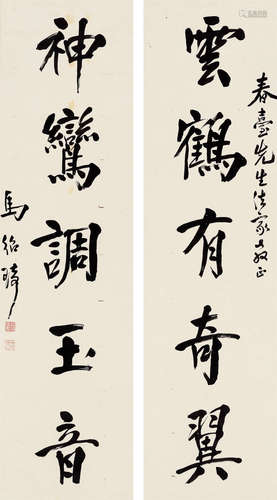 春臺先生法家之教正
雲鶴有奇翼
神鸞調玉音
馬紹